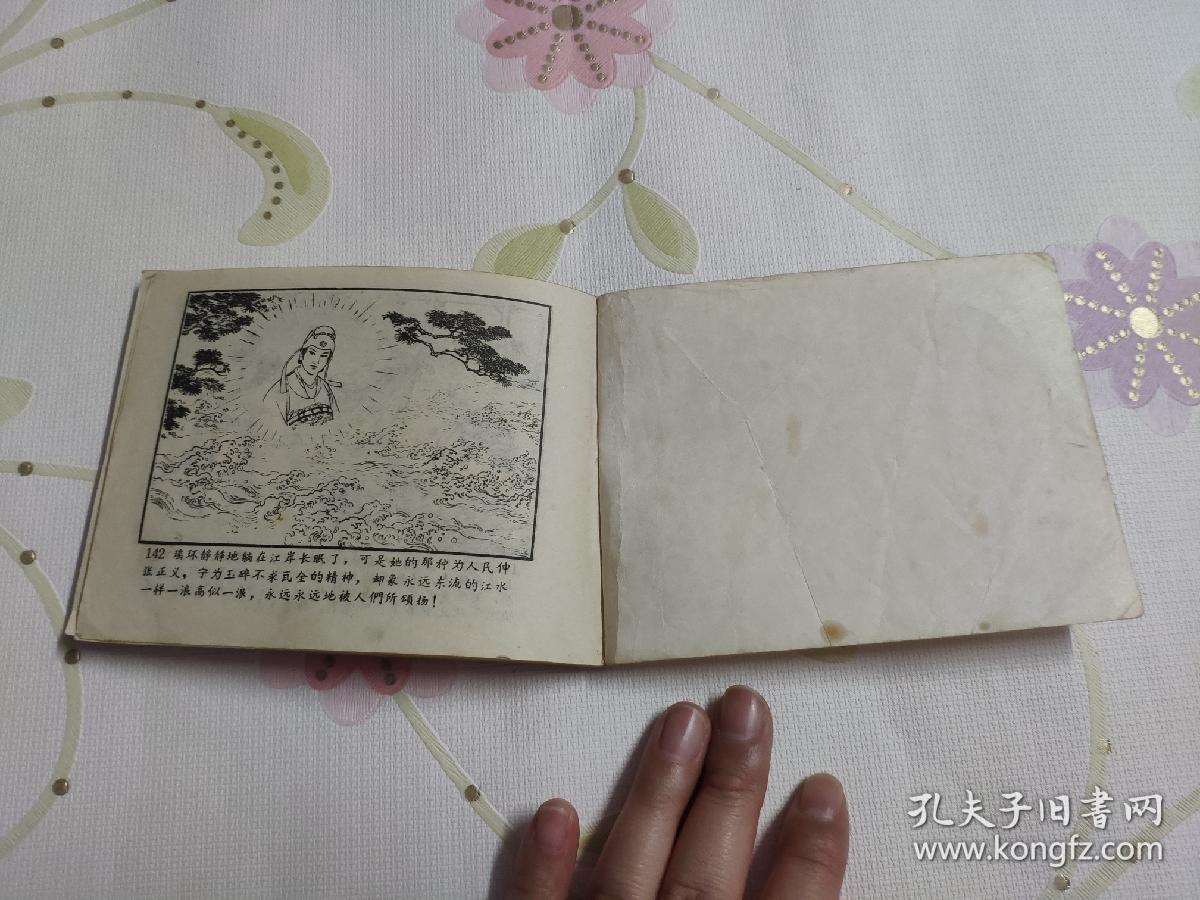 142 璜环静静地躺在江岸长眠了，可是她的那种为人民伸
张正义，宁为玉碎不求瓦全的精神，却象永远东流的江水
一样一浪高似一浪，永远永远地被人們所頌扬！
孔夫子旧书网
www.kongfz.com